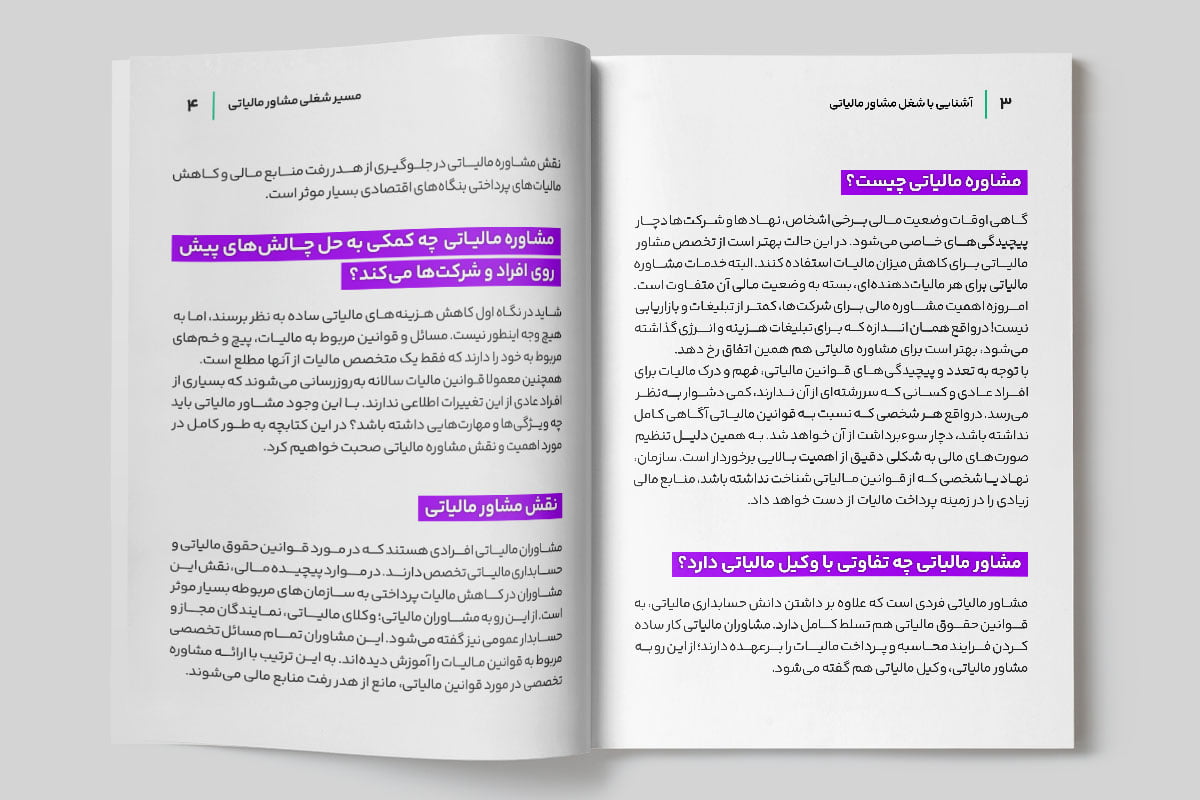 ۳ | آشنایی با شغل مشاور مالیاتی
مشاوره مالیاتی چیست؟
گاهی اوقات وضعیت مالی برخی اشخاص، نهادها و شرکت‌ها دچار
پیچیدگی‌های خاصی می‌شود. در این حالت بهتر است از تخصص مشاور
مالیاتی برای کاهش میزان مالیات استفاده کنند. البته خدمات مشاوره
مالیاتی برای هر مالیات‌دهنده‌ای، بسته به وضعیت مالی آن متفاوت است.
امروزه اهمیت مشاوره مالی برای شرکت‌ها، کمتر از تبلیغات و بازاریابی
نیست! درواقع همان اندازه که برای تبلیغات هزینه و انرژی گذاشته
می‌شود، بهتر است برای مشاوره مالیاتی هم همین اتفاق رخ دهد.
با توجه به تعدد و پیچیدگی‌های قوانین مالیاتی، فهم و درک مالیات برای
افراد عادی و کسانی که سررشته‌ای از آن ندارند، کمی دشوار به‌نظر
می‌رسد. درواقع هر شخصی که نسبت به قوانین مالیاتی آگاهی کامل
نداشته باشد، دچار سوءبرداشت از آن خواهد شد. به همین دلیل تنظیم
صورت‌های مالی به شکلی دقیق از اهمیت بالایی برخوردار است. سازمان،
نهاد یا شخصی که از قوانین مالیاتی شناخت نداشته باشد، منابع مالی
زیادی را در زمینه پرداخت مالیات از دست خواهد داد.
مشاور مالیاتی چه تفاوتی با وکیل مالیاتی دارد؟
مشاور مالیاتی فردی است که علاوه بر داشتن دانش حسابداری مالیاتی، به
قوانین حقوق مالیاتی هم تسلط کامل دارد. مشاوران مالیاتی کار ساده
کردن فرایند محاسبه و پرداخت مالیات را برعهده دارند؛ از این رو به
مشاور مالیاتی، وکیل مالیاتی هم گفته می‌شود.
مسیر شغلی مشاور مالیاتی | ۴
نقش مشاوره مالیاتی در جلوگیری از هدررفت منابع مالی و کاهش
مالیات‌های پرداختی بنگاه‌های اقتصادی بسیار موثر است.
مشاوره مالیاتی چه کمکی به حل چالش‌های پیش
روی افراد و شرکت‌ها می‌کند؟
شاید در نگاه اول کاهش هزینه‌های مالیاتی ساده به نظر برسند، اما به
هیچ وجه اینطور نیست. مسائل و قوانین مربوط به مالیات، پیچ و خم‌های
مربوط به خود را دارند که فقط یک متخصص مالیات از آنها مطلع است.
همچنین معمولا قوانین مالیات سالانه به‌روزرسانی می‌شوند که بسیاری از
افراد عادی از این تغییرات اطلاعی ندارند. با این وجود مشاور مالیاتی باید
چه ویژگی‌ها و مهارت‌هایی داشته باشد؟ در این کتابچه به طور کامل در
مورد اهمیت و نقش مشاوره مالیاتی صحبت خواهیم کرد.
نقش مشاور مالیاتی
مشاوران مالیاتی افرادی هستند که در مورد قوانین حقوق مالیاتی و
حسابداری مالیاتی تخصص دارند. در موارد پیچیده مالی، نقش این
مشاوران در کاهش مالیات پرداختی به سازمان‌های مربوطه بسیار موثر
است. از این رو به مشاوران مالیاتی؛ وکلای مالیاتی، نمایندگان مجاز و
حسابدار عمومی نیز گفته می‌شود. این مشاوران تمام مسائل تخصصی
مربوط به قوانین مالیات را آموزش دیده‌اند. به این ترتیب با ارائه مشاوره
تخصصی در مورد قوانین مالیاتی، مانع از هدر رفت منابع مالی می‌شوند.